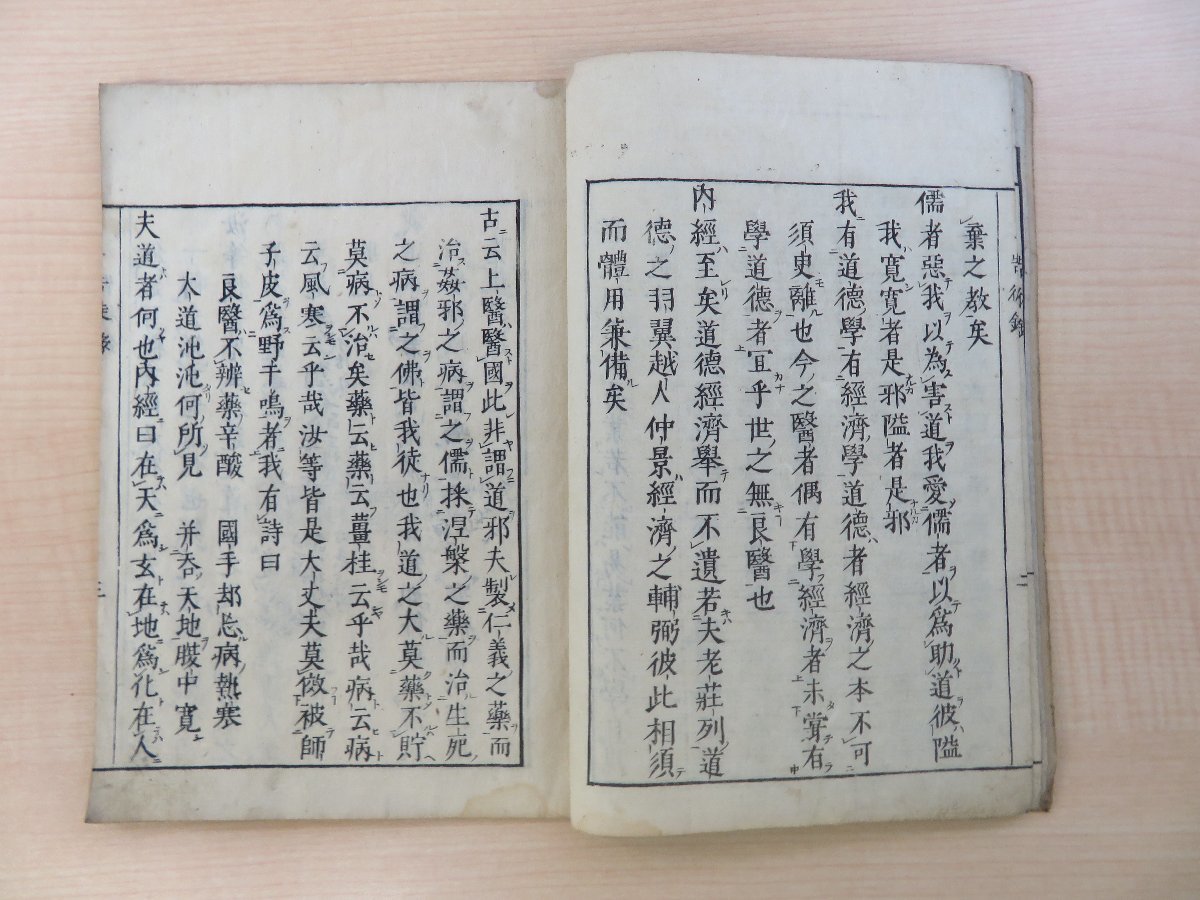 棄之教矣
儒者惡我以為害道我愛儒者以爲助道彼隘
我寛寛者是邪隘者是邪
我有道德學有經濟學道德者經濟之本不可
須臾離也今之醫者偶有學經濟者未嘗有
學道德者宜乎世之無良醫也
內經至矣道德經濟舉而不遺若夫老莊列道
德之羽翼越人仲景經濟之輔弼彼此相須
而體用兼備矣
古云上醫醫國此非謂道邪夫製仁義之藥而
治姦邪之病謂之儒採涅槃之藥而治生死
之病謂之佛皆我徒也我道之大莫藥不貯
莫病不治矣藥云藥云薑桂云乎哉病云病
云風寒云乎哉汝等皆是大丈夫莫傚被師
子皮爲野干鳴者我有詩曰
良醫不辨藥辛酸 國手却忘病熱寒
大道沌沌何所見 并吞天地腹中寬
夫道者何也內經曰在天爲玄在地爲化在人